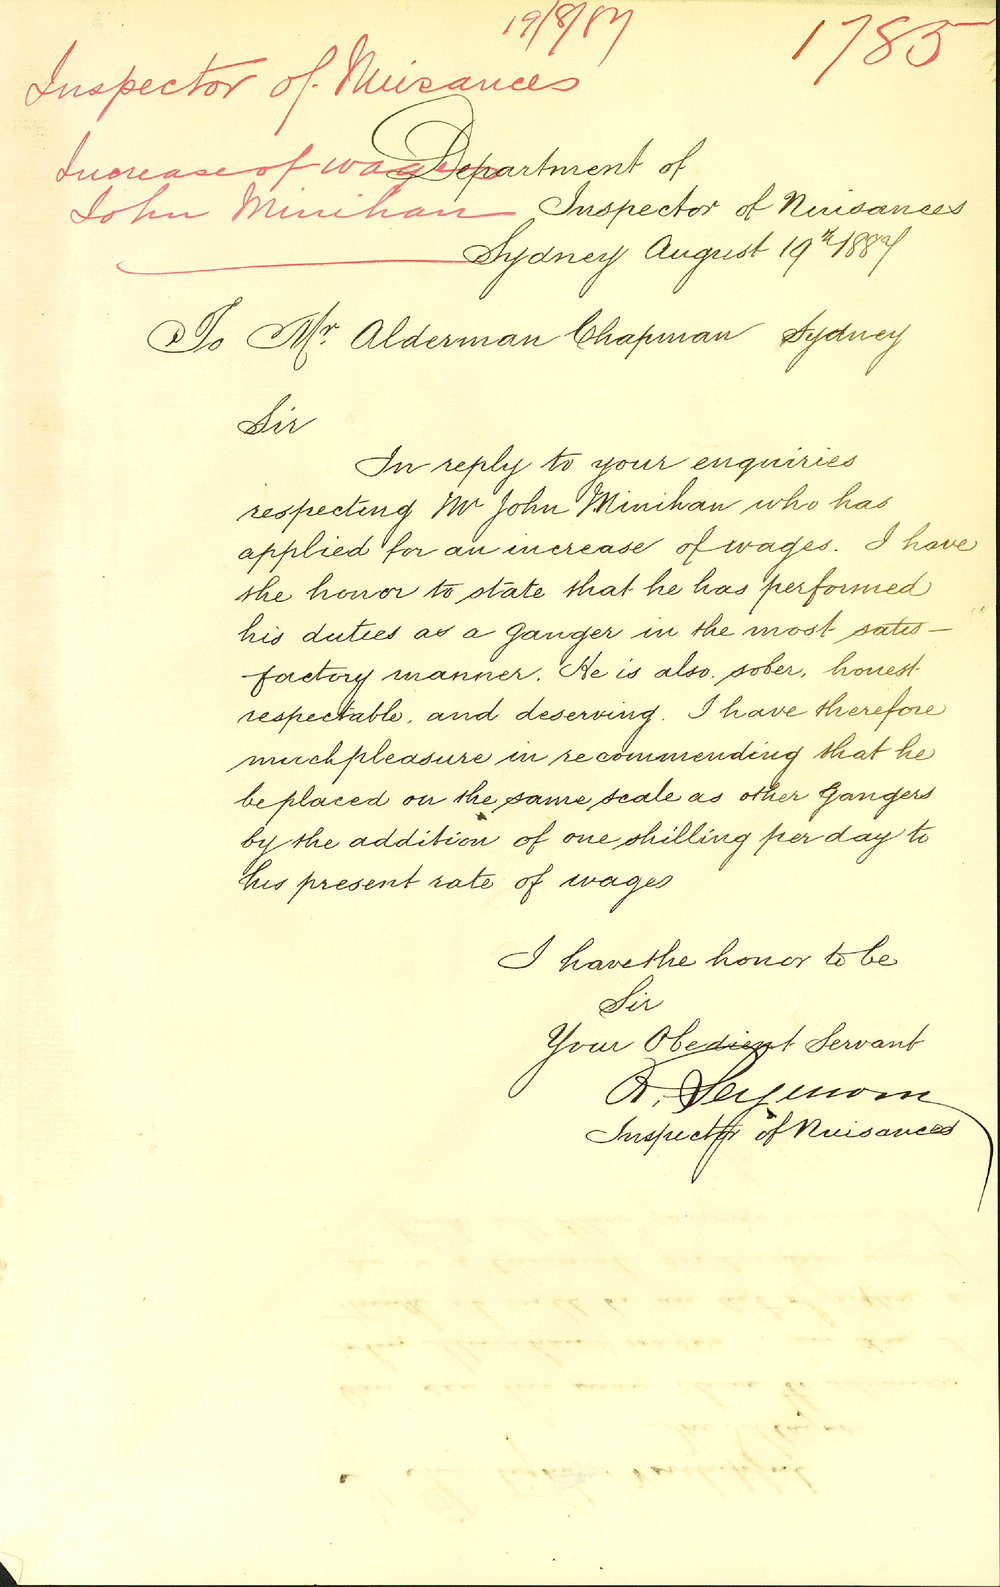 19/8/87
1785
Inspector of Nuisances
Increase of wages
John Minihan
Department of
Inspector of Nuisances
Sydney August 19th 1887
To Mr. Alderman Chapman Sydney
Sir
In reply to your enquiries
respecting Mr John Minihan who has
applied for an increase of wages. I have
the honor to state that he has performed
his duties as a Ganger in the most satis-
factory manner. He is also. sober, honest
respectable, and deserving. I have therefore
much pleasure in recommending that he
be placed on the same scale as other Gangers
by the addition of one shilling per day to
his present rate of wages
I have the honor to be
Sir
Your Obedient Servant
R. Seymour
Inspector of Nuisances